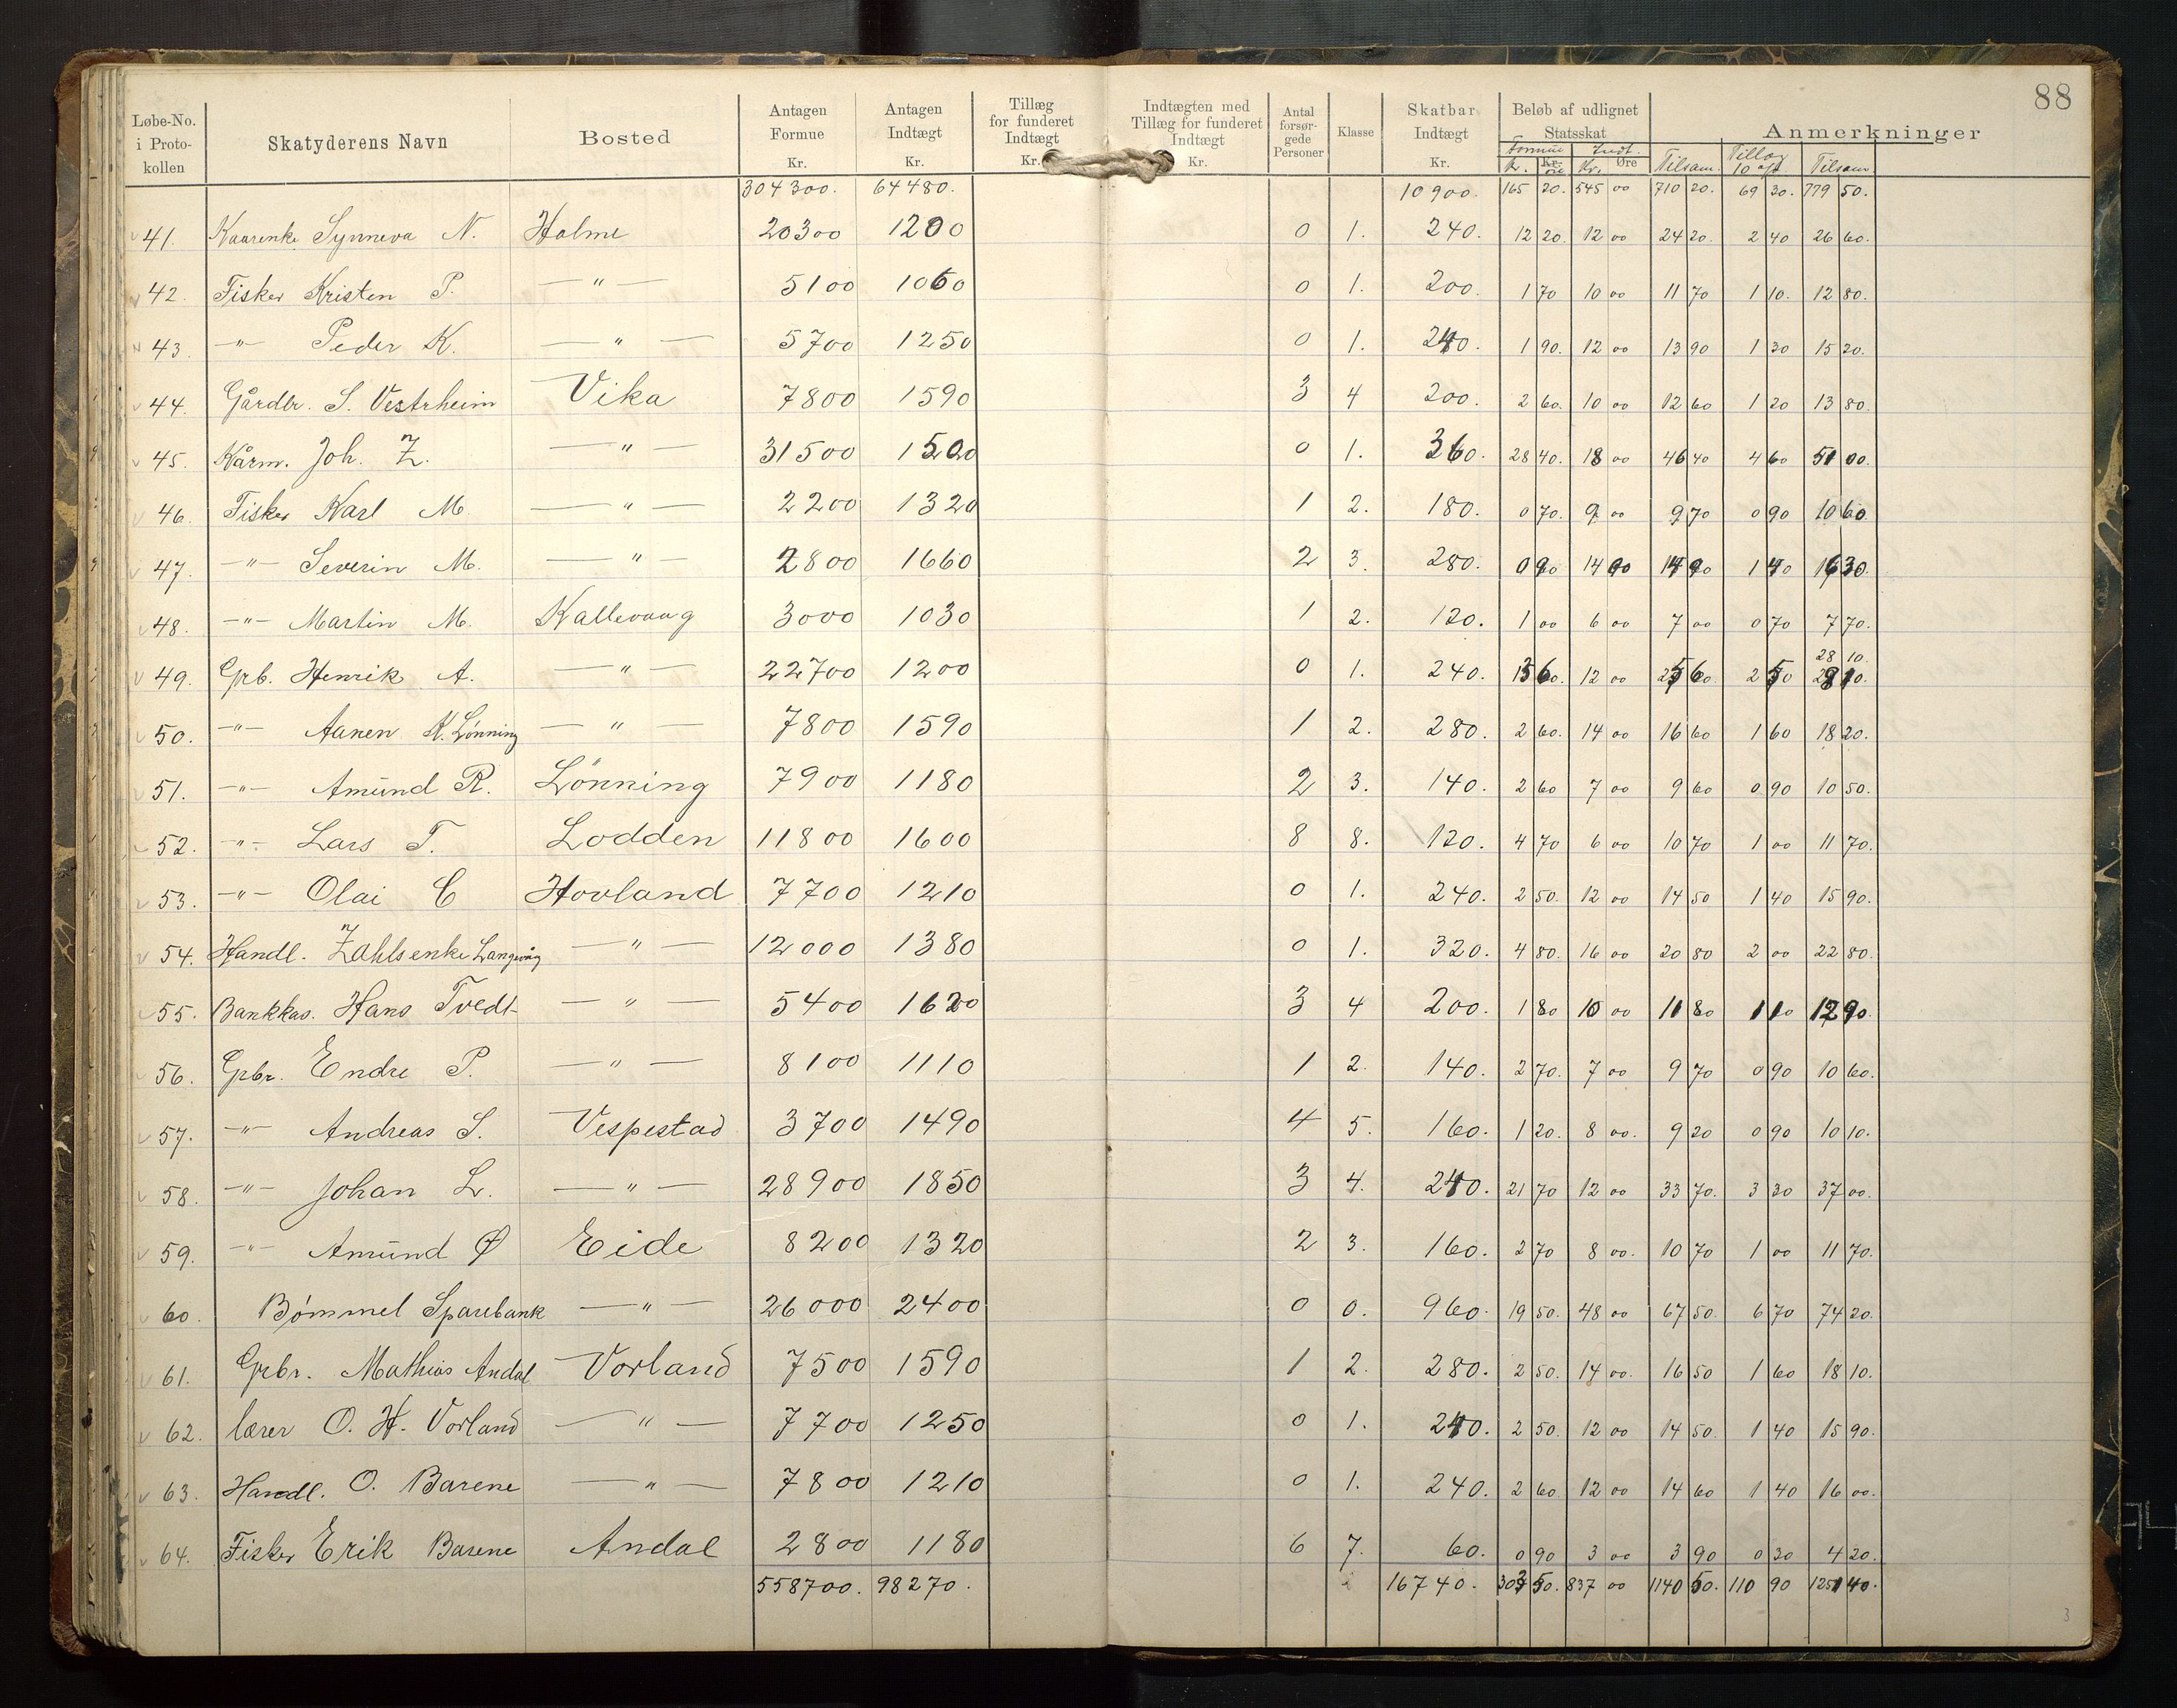 88
Løbe-No. i Proto-kollen | Skatyderens Navn | Bosted | Antagen Formue Kr. | Antagen Indtægt Kr. | Tillæg for funderet Indtægt Kr. | Indtægten med Tillæg for funderet Indtægt Kr. | Antal forsør-gede Personer | Klasse | Skatbar Indtægt Kr. | Beløb af udlignet Statsskat Formue Kr. Kr. øre Indt. Kr. Øre | Anmerkninger Tilsam. Tillæg 10 % Tilsam.
304300. 64480. 10900. 165 20. 545 00 710 20. 69 30. 779 50.
41. Kaarenke Synneva N. Holme 20300 1200 0 1. 240. 12 20. 12 00 24 20. 2 40 26 60.
42. Fisker Kristen P. —"— 5100 1060 0 1. 200. 1 70 10 00 11 70 1 10. 12 80.
43. —"— Peder K. —"— 5700 1250 0 1. 240. 1 90. 12 00 13 90 1 30 15 20.
44. Gårdbr. S. Vestrheim Vika 7800 1590 3 4 200. 2 60. 10 00 12 60 1 20 13 80.
45. Kårm. Joh. Z. —"— 31500 1520 0 1. 360. 28 40. 18 00 46 40 4 60 51 00.
46. Fisker Karl M. —"— 2200 1320 1 2. 180. 0 70. 9 00 9 70 0 90 10 60.
47. —"— Severin M. —"— 2800 1660 2 3. 280. 0 90 14 00 14 90 1 40 16 30.
48. —"— Martin M. Kallevaag 3000 1030 1 2. 120. 1 00 6 00 7 00 0 70 7 70.
28 10.
49. Grb. Henrik A. —"— 22700 1200 0 1. 240. 13 60. 12 00 25 60. 2 50 28 10.
50. —"— Aanen K. Lønning —"— 7800 1590 1 2. 280. 2 60. 14 00 16 60 1 60 18 20.
51. —"— Amund R. Lönning 7900 1180 2 3. 140. 2 60 7 00 9 60 0 90 10 50.
52. —"— Lars T. Lodden 11800 1600 8 8. 120. 4 70 6 00 10 70 1 00 11 70.
53. —"— Olai C Hovland 7700 1210 0 1. 240. 2 50. 12 00 14 50 1 40 15 90.
54. Handl. Zahlsenke Langevåg —"— 12000 1380 0 1. 320. 4 80. 16 00 20 80 2 00 22 80.
55. Bankkas. Hans Tvedt —"— 5400 1620 3 4 200. 1 80 10 00 11 80 1 10 12 90.
56. Grbr. Endre P. —"— 8100 1110 1 2. 140. 2 70. 7 00 9 70 0 90 10 60.
57. —"— Andreas S. Vespestad 3700 1490 4 5. 160. 1 20. 8 00. 9 20 0 90 10 10.
58. —"— Johan L. —"— 28900 1850 3 4. 240. 21 70 12 00 33 70. 3 30 37 00.
59. —"— Amund Ø Eide 8200 1320 2 3. 160. 2 70 8 00. 10 70 1 00 11 70.
60. Bømmel Sparebank —"— 26000 2400 0 0. 960. 19 50. 48 00 67 50. 6 70 74 20.
61. Grbr. Mathias Andal Vorland 7500 1590 1 2. 280. 2 50. 14 00. 16 50 1 60 18 10.
62. lærer O. H. Vorland —"— 7700 1250 0 1. 240. 2 50. 12 00 14 50. 1 40 15 90.
63. Handl. O. Barene —"— 7800 1210 0 1. 240. 2 60 12 00 14 60 1 40 16 00.
64. Fisker Erik Barene Andal 2800 1180 6 7. 60. 0 90 3 00 3 90 0 30 4 20.
558700. 98270. 16740. 303 50. 837 00 1140 50. 110 90 1251 40.
3